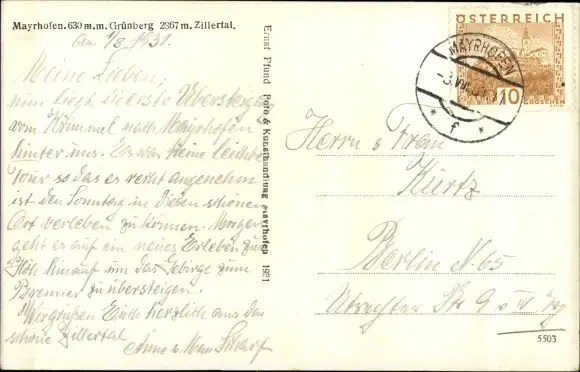 Mayrhofen. 630 m.m. Grünberg 2867 m. Zillertal.
am 1/8 1931.
Meine Lieben,
nun liegt die erste Übersteigung
vom Krimmel nach Mayrhofen
hinter uns. Es war keine leichte
Tour so das es recht angenehm
ist den Sonntag in diesen schönen
Ort verleben zu können. Morgen
geht es auf ein neues Erleben zur
Höh hinauf um das Gebirge zum
Brenner zu übersteigen.
Wir grüßen Euch herzlich aus das
schöne Zillertal
Anne u Max Scharf
Ernst Pfund Foto & Kunsthandlung Mayrhofen 1931
ÖSTERREICH
10
GROSCHEN
MAYRHOFEN
* f *
Herrn u Frau
Kurtz
Berlin N. 65
Utrechter Str 9 v IV
5503